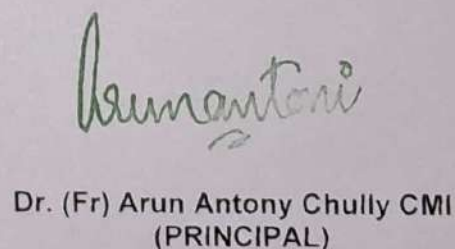 Arunantoni
Dr. (Fr) Arun Antony Chully CMI
(PRINCIPAL)